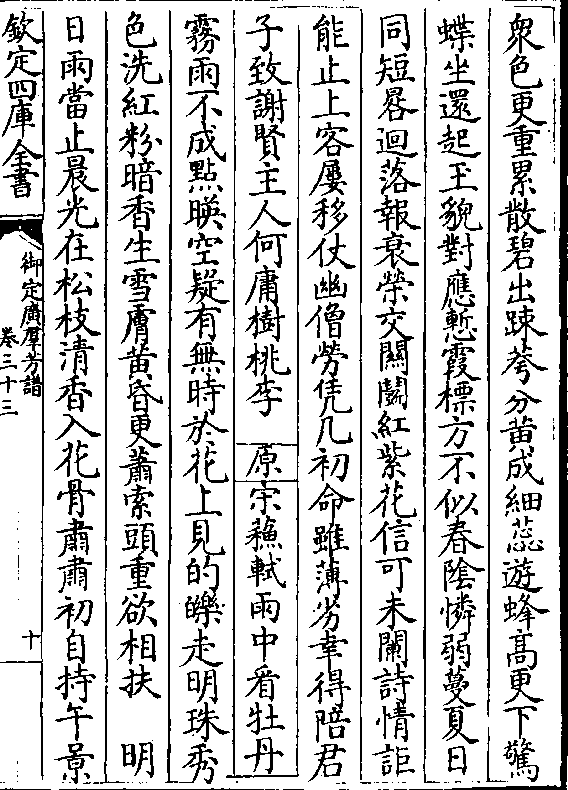 衆色更重累散碧出踈萼分黄成細蕊遊蜂髙更下驚
蝶坐還起玉貌對應慙霞標方不似春隂憐弱蔓夏日
同短晷迴落報衰榮交闗鬭紅紫花信可未闌詩情詎
能止上客屢移仗幽僧勞凭几初命雖薄劣幸得陪君
子致謝賢主人何庸樹桃李　原宋蘇軾雨中看牡丹
霧雨不成點暎空疑有無時於花上見的皪走明珠秀
色洗紅粉暗香生雪膚黄昏更蕭索頭重欲相扶　明
日雨當止晨光在松枝清香入花骨肅肅初自持午景
欽定四庫全書
御定廣羣芳譜
卷三十三
十